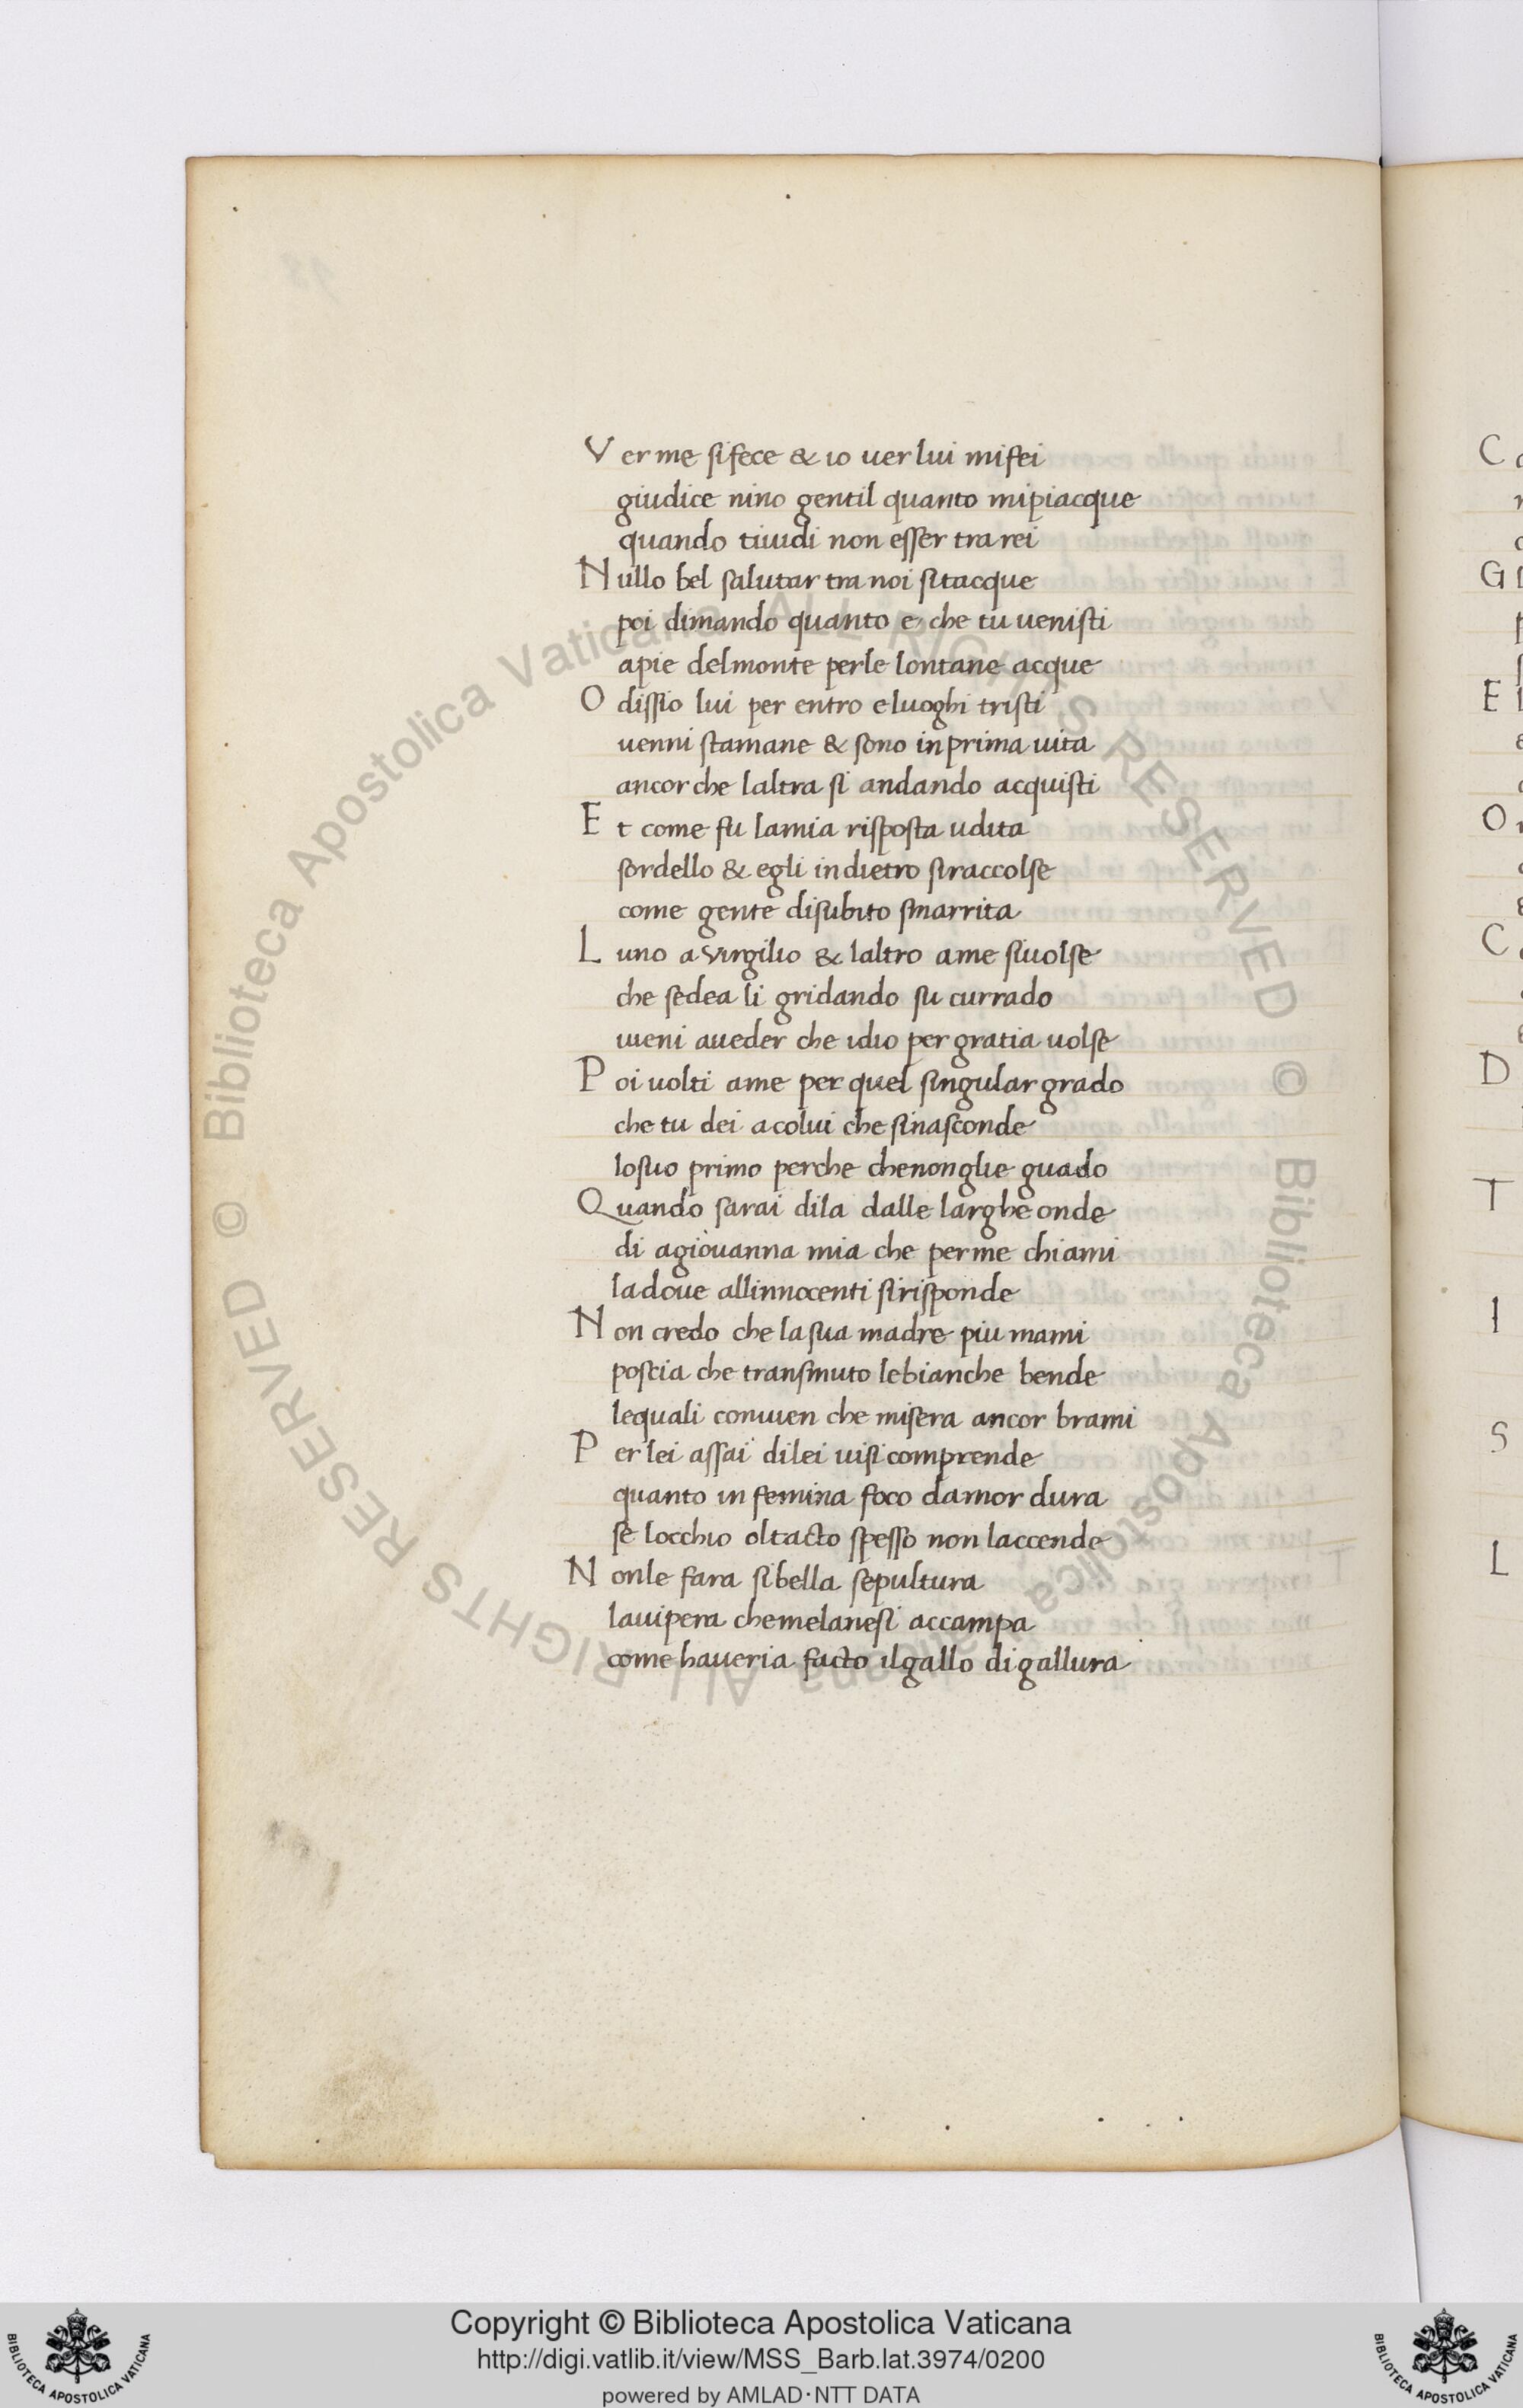 Ver me sifece & io uer lui mifei
giudice nino gentil quanto mipiacque
quando tiuidi non esser tra rei
Nullo bel salutar tra noi sitacque
poi dimando quanto e che tu uenisti
apie delmonte perle lontane acque
O dissio lui per entro eluoghi tristi
uenni stamane & sono inprima uita
ancor che laltra si andando acquisti
Et come fu lamia risposta udita
sordello & egli indietro siraccolse
come gente disubito smarrita
Luno a virgilio & laltro ame siuolse
che sedea li gridando su currado
uieni aueder che idio per gratia uolse
Poi uolti ame per quel singular grado
che tu dei acolui che sinasconde
losuo primo perche chenonglie guado
Quando sarai dila dalle larghe onde
di agiouanna mia che perme chiami
ladoue allinnocenti sirisponde
Non credo che lasua madre piu mami
poscia che transmuto lebianche bende
lequali conuien che misera ancor brami
Per lei assai dilei uisi comprende
quanto in femina foco damor dura
se locchio oltacto spesso non laccende
Nonle fara sibella sepultura
lauipera chemelanesi accampa
come haueria facto ilgallo digallura
C
G
E
O
C
D
T
I
S
L
© Biblioteca Apostolica Vaticana ALL RIGHTS RESERVED © Biblioteca Apostolica Vaticana ALL RIGHTS RESERVED
Copyright © Biblioteca Apostolica Vaticana
http://digi.vatlib.it/view/MSS_Barb.lat.3974/0200
powered by AMLAD·NTT DATA
BIBLIOTECA APOSTOLICA VATICANA
BIBLIOTECA APOSTOLICA VATICANA